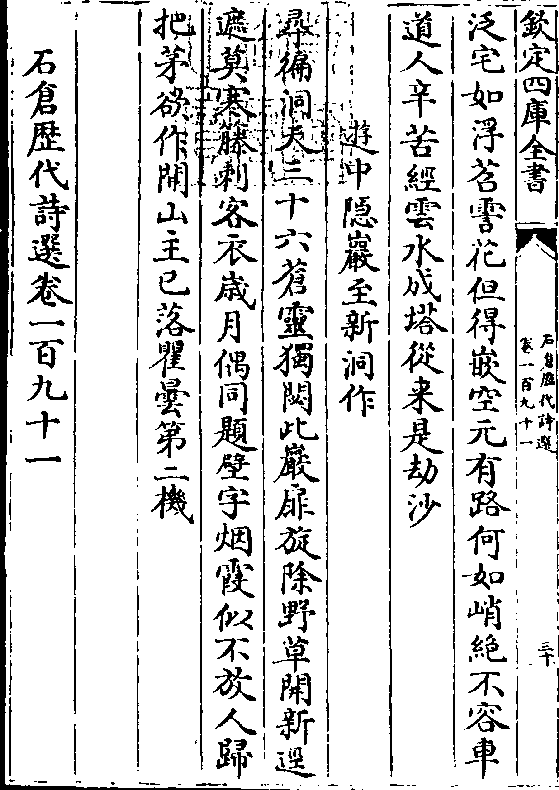 欽定四庫全書
石倉歴代詩選
卷一百九十一
三十
泛宅如浮苕霅花但得嵌空元有路何如峭絶不容車
道人辛苦經雲水成塔從来是劫沙
遊中隱巖至新洞作
尋徧洞天三十六蒼靈獨閟此巖扉旋除野草開新逕
遮莫寒藤刺客衣歳月偶同題壁字烟霞似不放人歸
把茅欲作開山主已落瞿曇第二機
石倉歴代詩選卷一百九十一